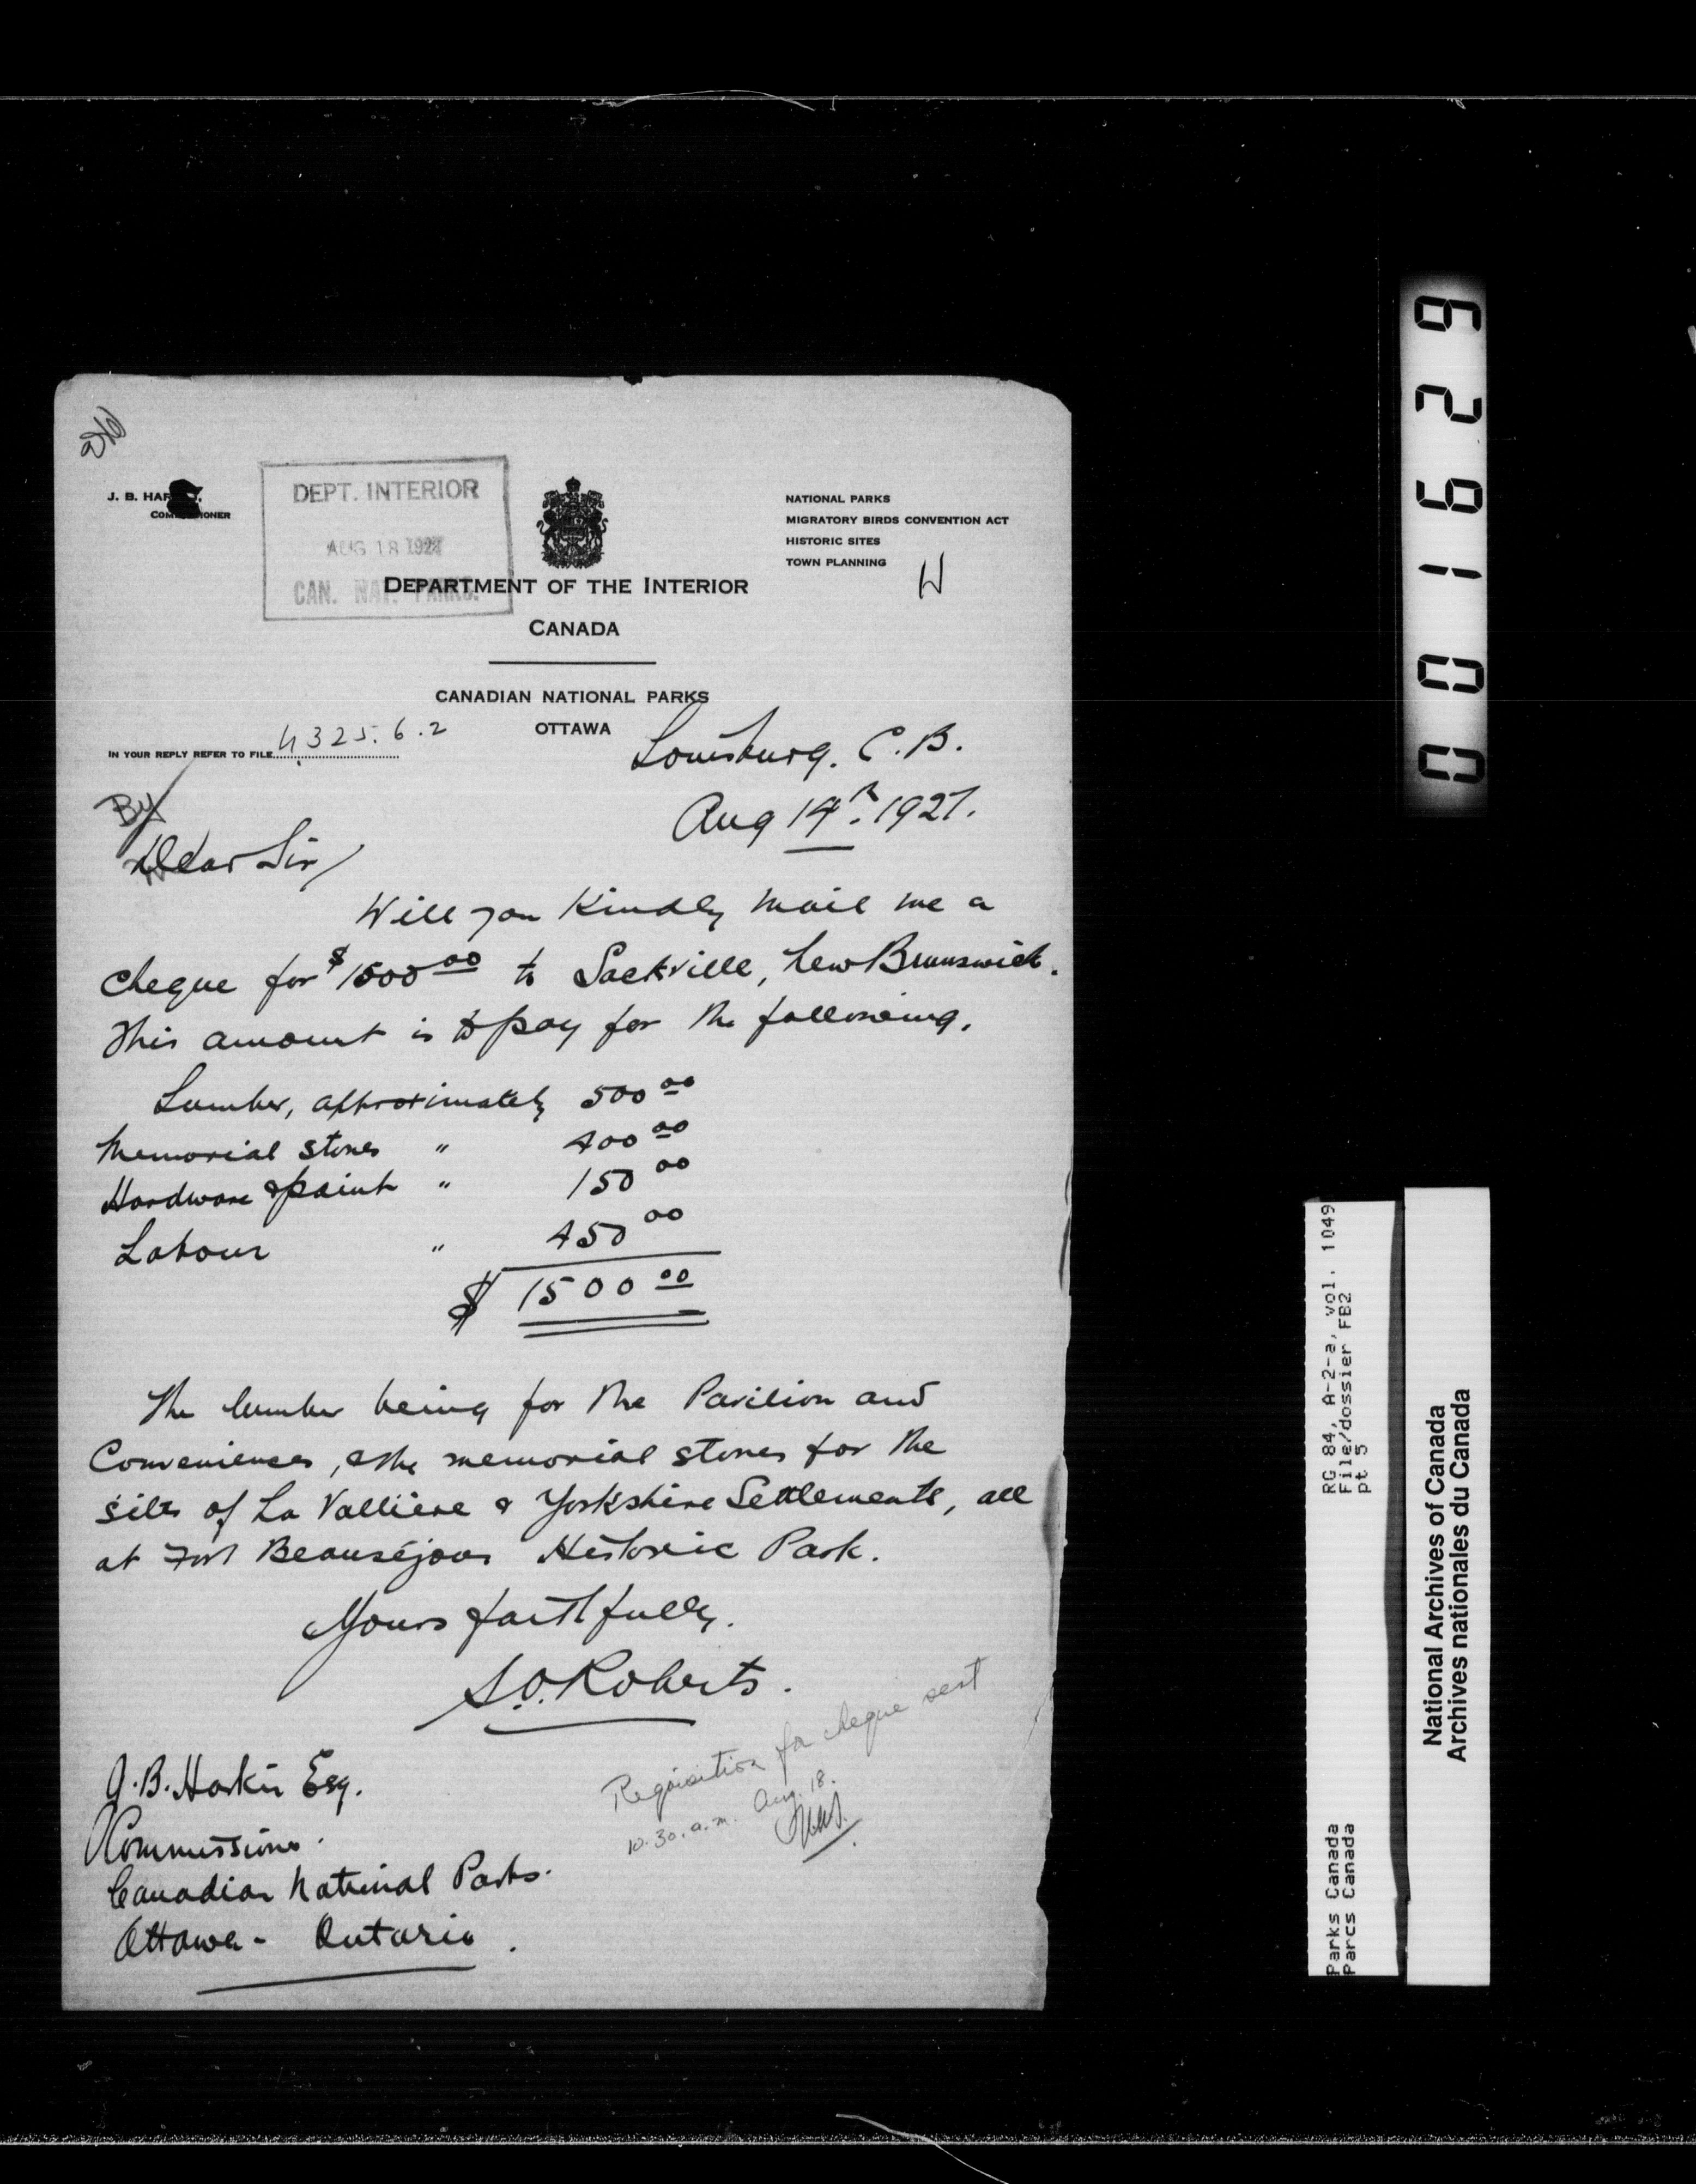 J. B. HAR
COMMISSIONER
DEPT. INTERIOR
AUG 18 1927
CAN. NAT. PARKS.
NATIONAL PARKS
MIGRATORY BIRDS CONVENTION ACT
HISTORIC SITES
TOWN PLANNING
H
DEPARTMENT OF THE INTERIOR
CANADA
CANADIAN NATIONAL PARKS
OTTAWA
IN YOUR REPLY REFER TO FILE 4325.6.2
Louisburg. C.B.
Aug 14th. 1927.
By
Dear Sir/
Will you Kindly mail me a
cheque for $1500 00 to Sackville, New Brunswick.
This amount is to pay for the following.
Lumber, approximately 500 00
Memorial stones " 400 00
Hardware & paint " 150 00
Labour " 450 00
$ 1500 00
The lumber being for the Pavilion and
Conveniences, & the memorial stones for the
sites of La Vallière & Yorkshire Settlements, all
at Fort Beauséjour Historic Park.
Yours faithfully.
S.O. Roberts.
Requisition for cheque sent
10.30. a.m. Aug. 18.
J.B. Harkin Esq.
Commissioner.
Canadian National Parks.
Ottawa - Ontario.
001629
RG 84, A-2-a, vol. 1049
File/dossier FB2
pt 5
Parks Canada
Parcs Canada
National Archives of Canada
Archives nationales du Canada